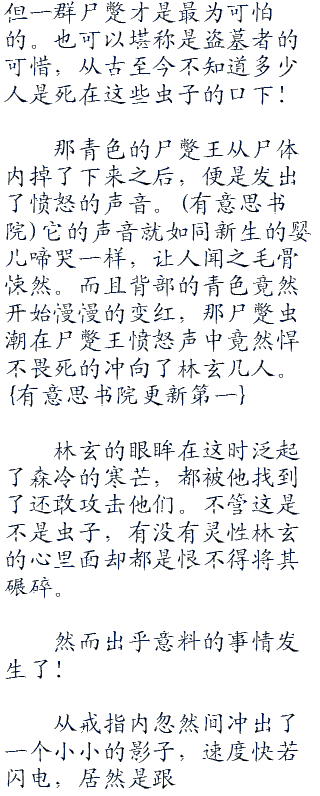 但一群尸蹩才是最为可怕
的。也可以堪称是盗墓者的
可惜，从古至今不知道多少
人是死在这些虫子的口下！
那青色的尸蹩王从尸体
内掉了下来之后，便是发出
了愤怒的声音。(有意思书
院)它的声音就如同新生的婴
儿啼哭一样，让人闻之毛骨
悚然。而且背部的青色竟然
开始慢慢的变红，那尸蹩虫
潮在尸蹩王愤怒声中竟然悍
不畏死的冲向了林玄几人。
{有意思书院更新第一}
林玄的眼眸在这时泛起
了森冷的寒芒，都被他找到
了还敢攻击他们。不管这是
不是虫子，有没有灵性林玄
的心里面却都是恨不得将其
碾碎。
然而出乎意料的事情发
生了！
从戒指内忽然间冲出了
一个小小的影子，速度快若
闪电，居然是跟